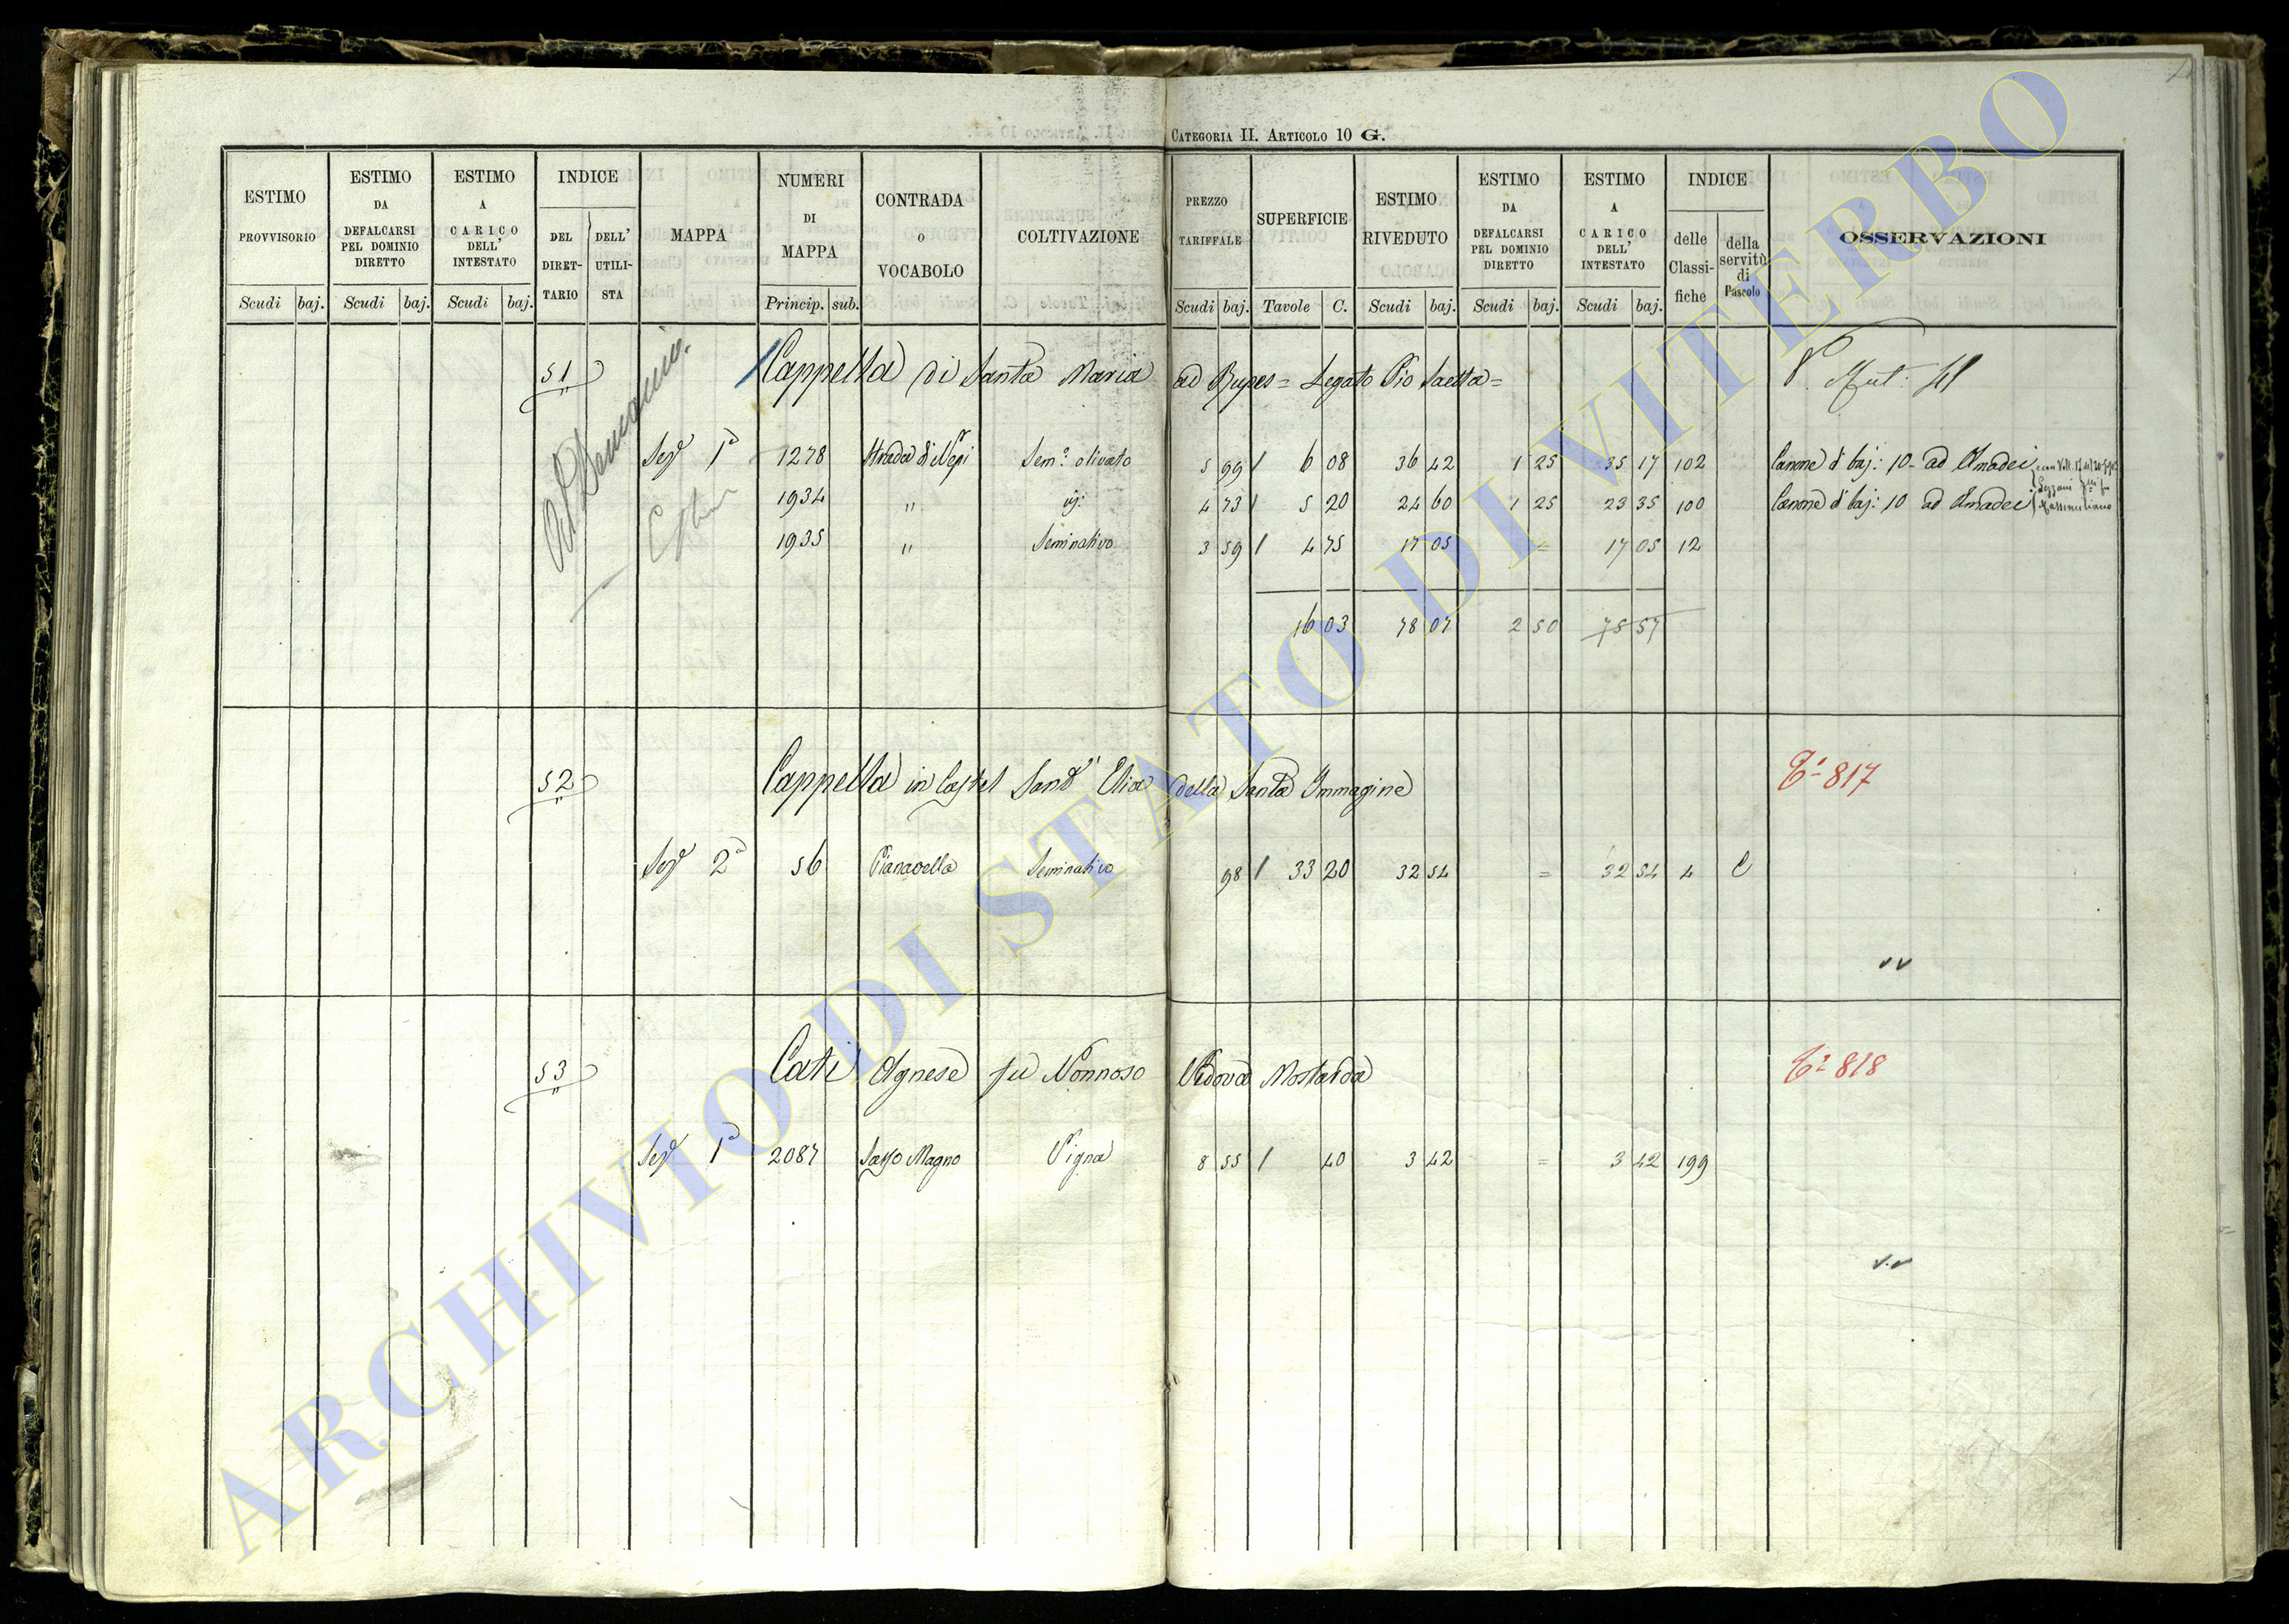 CATEGORIA II. ARTICOLO 10 G.
ESTIMO PROVVISORIO Scudi baj.
ESTIMO DA DEFALCARSI PEL DOMINIO DIRETTO Scudi baj.
ESTIMO A CARICO DELL' INTESTATO Scudi baj.
INDICE DEL DIRET-TARIO DELL' UTILI-STA
MAPPA
NUMERI DI MAPPA Princip. sub.
CONTRADA O VOCABOLO
COLTIVAZIONE
PREZZO TARIFFALE Scudi baj.
SUPERFICIE Tavole C.
ESTIMO RIVEDUTO Scudi baj.
ESTIMO DA DEFALCARSI PEL DOMINIO DIRETTO Scudi baj.
ESTIMO A CARICO DELL' INTESTATO Scudi baj.
INDICE delle Classi-fiche della servitù di Pascolo
OSSERVAZIONI
51 Cappella di Santa Maria ad Rupes = Legato Pio Saetta =
Al Demanio
Sez.e 1a 1278 Strada di Nepi Sem.o olivato 5 99 6 08 36 42 1 25 35 17 102 Canone di baj: 10 - ad Amadei
1934 " id: 4 73 5 20 24 60 1 25 23 35 100 Canone di baj: 10 ad Amadei Massimiliano
1935 " Seminativo 3 59 4 75 17 05 = 17 05 12
16 03 78 07 2 50 75 57
52 Cappella in Castel Sant' Elia della Santa Immagine 817
Sez.e 2a 56 Pianavella Seminativo 98 33 20 32 54 = 32 54 4 C
53 Cati Agnese fu Nonnoso Vedova Mostarda 818
Sez.e 1a 2087 Sasso Magno Vigna 8 55 40 3 42 = 3 42 199
ARCHIVIO DI STATO DI VITERBO